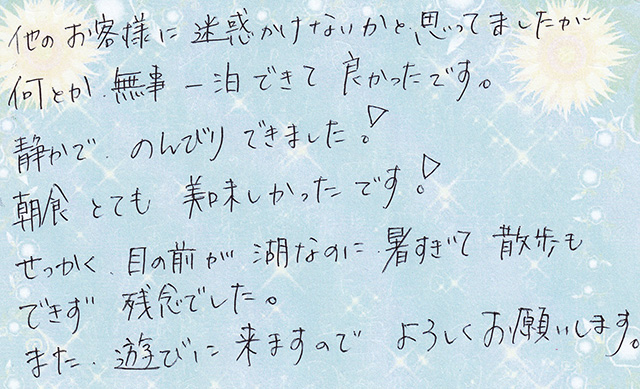 他のお客様に迷惑かけないかと思ってましたが
何とか無事一泊できて良かったです。
静かで、のんびりできました!
朝食とても美味しかったです!
せっかく、目の前が湖なのに暑すぎて散歩も
できず残念でした。
また、遊びに来ますのでよろしくお願いします。